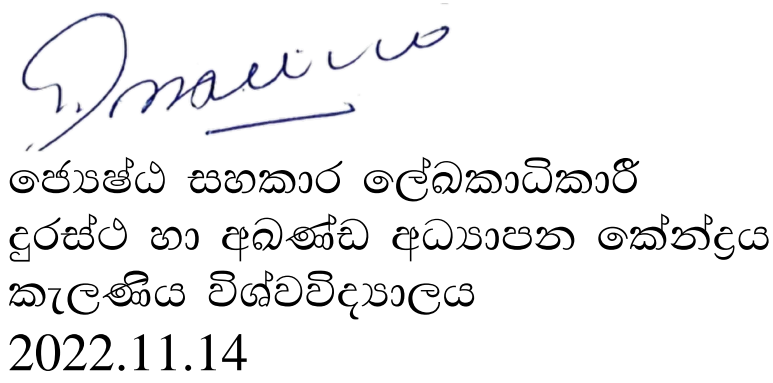 ජ්‍යෙෂ්ඨ සහකාර ලේඛකාධිකාරී
දුරස්ථ හා අඛණ්ඩ අධ්‍යාපන කේන්ද්‍රය
කැලණිය විශ්වවිද්‍යාලය
2022.11.14